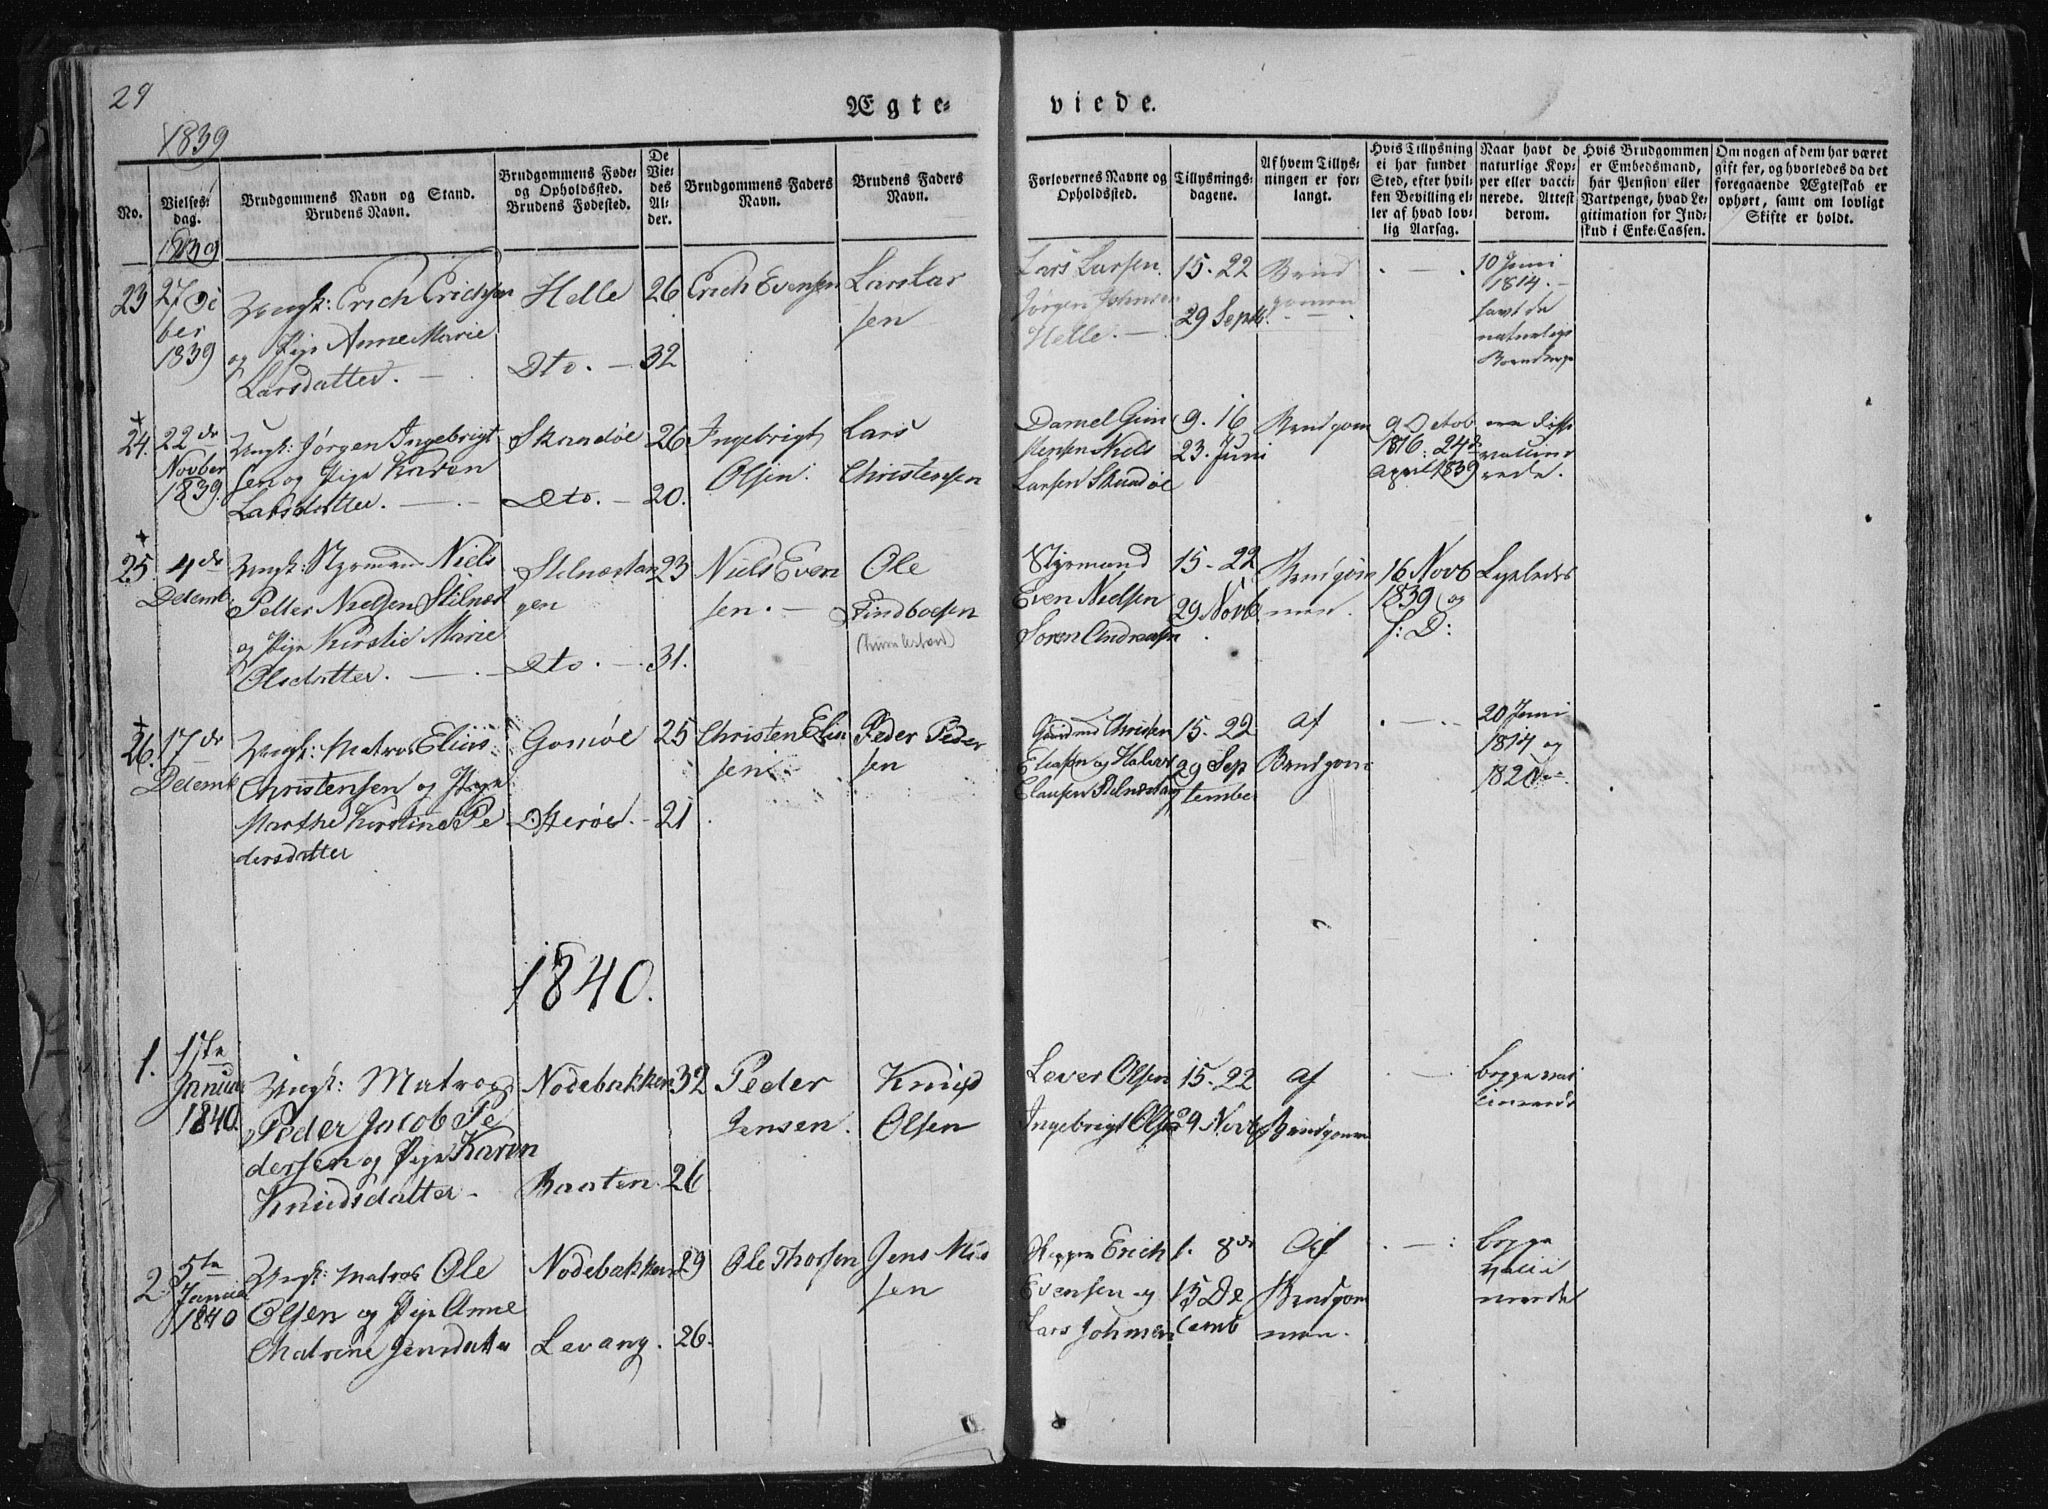 29
Ægte-
viede.
1839
No.
Vielses-
dag.
Brudgommens Navn og Stand.
Brudens Navn.
Brudgommens Føde-
og Opholdssted.
Brudens Fødested.
De
Vie-
des
Al-
der.
Brudgommens Faders
Navn.
Brudens Faders
Navn.
Forlovernes Navne og
Opholdssted.
Tillysnings-
dagene.
Af hvem Tillys-
ningen er for-
langt.
Hvis Tillysning
ei har fundet
Sted, efter hvil-
ken Bevilling el-
ler af hvad lov-
lig Aarsag.
Naar havt de
naturlige Kop-
per eller vacci-
nerede. Attest-
derom.
Hvis Brudgommen
er Embedsmand,
har Pension eller
Vartpenge, hvad Le-
gitimation for Ind-
skud i Enke-Cassen.
Om nogen af dem har været
gift før, og hvorledes da det
foregaaende Ægteskab er
ophørt, samt om lovligt
Skifte er holdt.
1839
23
27
ber
1839
Ungk: Erich Erichsen
og Pige Anne Marie
Larsdatter. —
Helle
Dto. —
26
32
Erich Evensen
Lars Lar
sen
Lars Larsen
Jørgen Johnsen
Helle. —
15. 22
29 Septb.
Brud
gomen
. — .
10 Juni
1814. —
havt de
naturlige
24.
22de
Novber
1839.
Ungk: Jørgen Ingebrigt
sen og Pige Karen
Larsdatter. — .
Skandøe
Dto. —
26
20.
Ingebrigt
Olsen.
Lars
Christensen
Daniel
Niels
Larsen Skandøe
9. 16
23. Juni
Brudgom
9 Octob
1816. 24de
April 1839
rede.
25.
4de
Decemb.
Ungk: Styrmand Niels
Petter Nielsen Stilnæs
og Pige Kirstie Marie
Olsdatter. — .
Stilnæstan
gen
Dto. —
23
31.
Niels Even
sen. —
Ole
Findboesen
Styrmand
Even Nielsen
Soren Andreasen
15. 22
29 Novb
.
Brudgom
men.
16 Novb
1839 og
S: D:
Ligeledes
26.
17de
Decemb
Ungk: Matros Elias
Christensen og Pige
Marthe Kirstine Pe
dersdatter
Gomøe
Osterøe. —
25
21
Christen Elia
sen. —
Peder Peder
sen
Christen
Eliasen og Halvor
Clausen Stilnæstang
15. 22
29 Sep
tember
af
Brudgom
. — .
20 Juni
1814 og
1840.
1.
17te
Januar
1840.
Ungk: Matros
Peder Jacob Pe
dersen og Pige Karen
Knudsdatter —
Nodebakken
Baaten.
32
26
Peder
Jensen.
Knud
Olsen
Lever Olsen
Ingebrigt Olsen
15. 22
29 Novb
af
Brudgomen
. — .
begge vac
2.
5te
Januar
1840
Ungk: Matros Ole
Olsen og Pige Anne
Chatrine Jensdatter
Nodebakken
Levang.
29
26.
Ole Thorsen
Jens Nis
sen
Skipper Erich
Evensen og
Lars Johnsen
1. 8de
15 De
cemb
Af
Brudgom
men.
. — :
begge
vacci
nerede